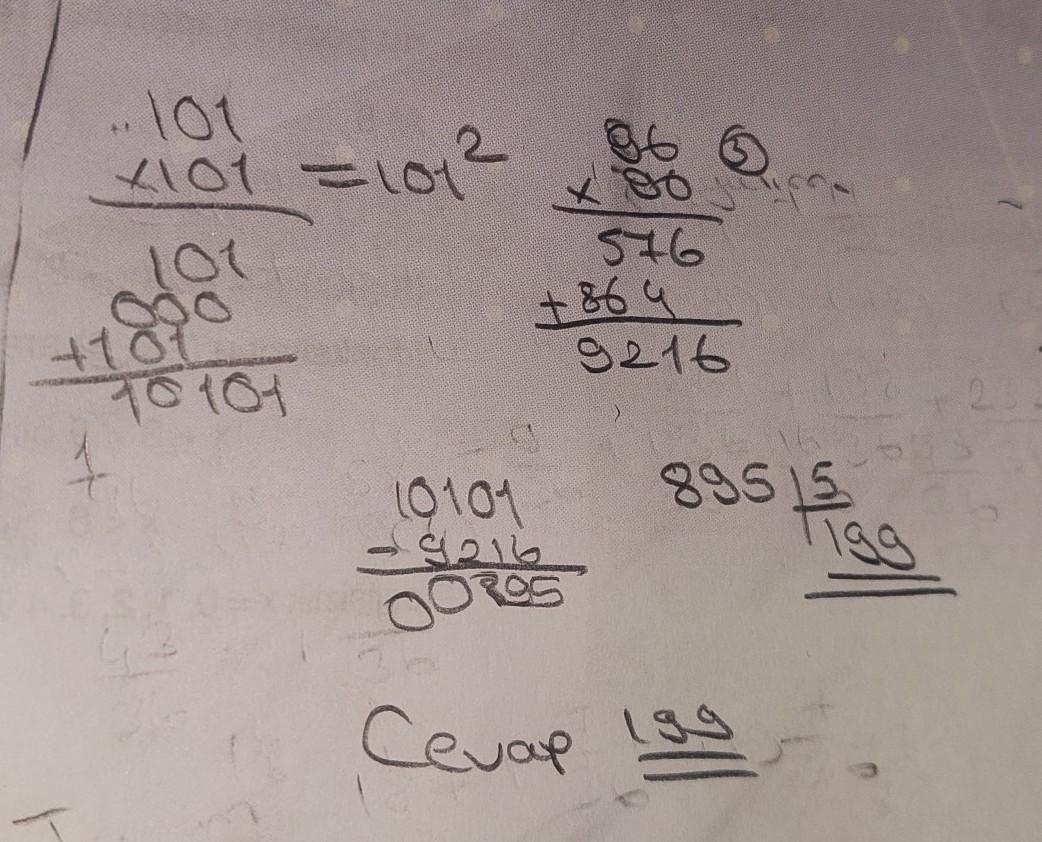 101
x101 = 101²
101
000
+101
10101
96
x 96
576
+864
9216
10101
- 9216
00895
895 | 5
199
Cevap 199